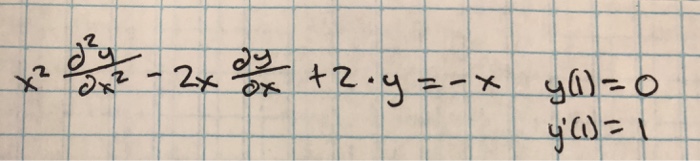 x² ∂²y/∂x² - 2x ∂y/∂x + 2·y = -x y(1) = 0
y'(1) = 1